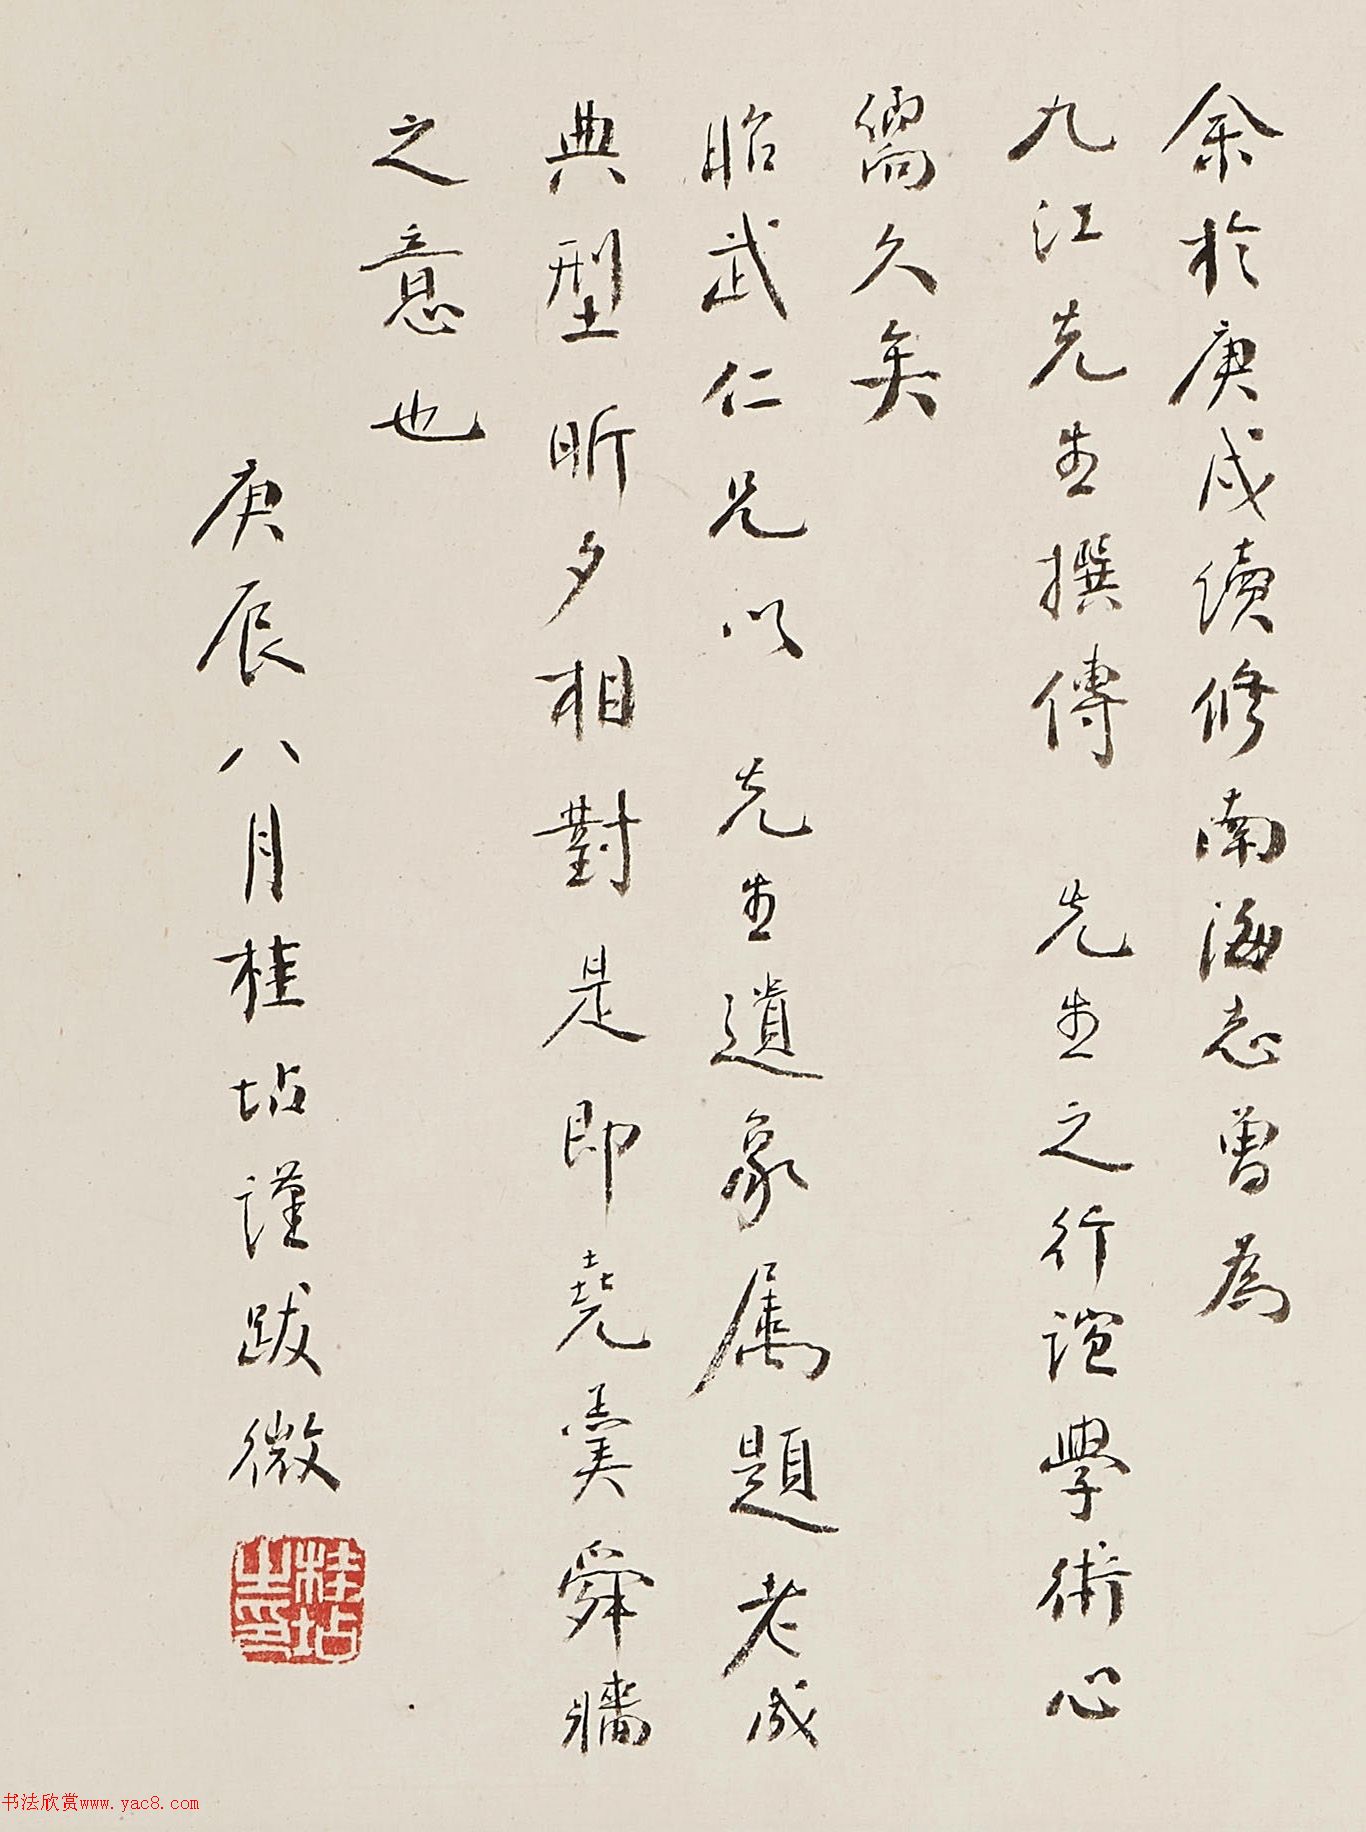 余於庚戌續修南海志曾為
九江先生撰傳 先生之行誼學術心
儀久矣
昭武仁兄以 先生遺象属題老成
典型昕夕相對是即堯羹舜牆
之意也
庚辰八月桂坫謹跋
桂坫之印
书法欣赏www.yac8.com